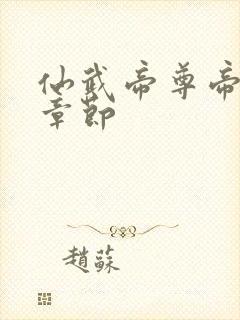 仙武帝尊帝
章節
趙蘇